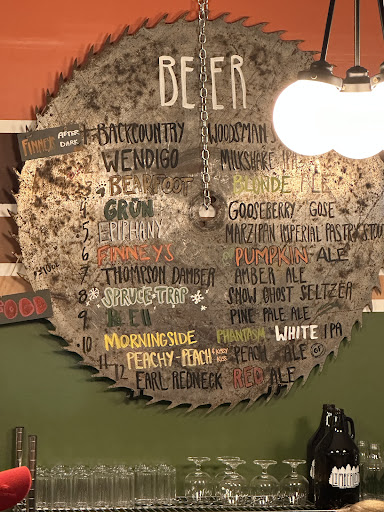 BEER
FINNER AFTER DARK
1 BACKCOUNTRY WOODSMAN'S
WENDIGO MILKSHAKE IPA
3 BEARFOOT BLONDE ALE
4 GRÜN GOOSEBERRY GOSE
5 EPIPHANY MARZIPAN IMPERIAL PASTRY STOUT
6 FINNEYS PUMPKIN ALE
7 THOMPSON DAMBER AMBER ALE
8 SPRUCE TRAP SNOW GHOST SELTZER
9 PINE PALE ALE
10 MORNINGSIDE PHANTASM WHITE IPA
11 PEACHY-PEACH PEACH ALE
12 EARL REDNECK RED ALE
FOOD